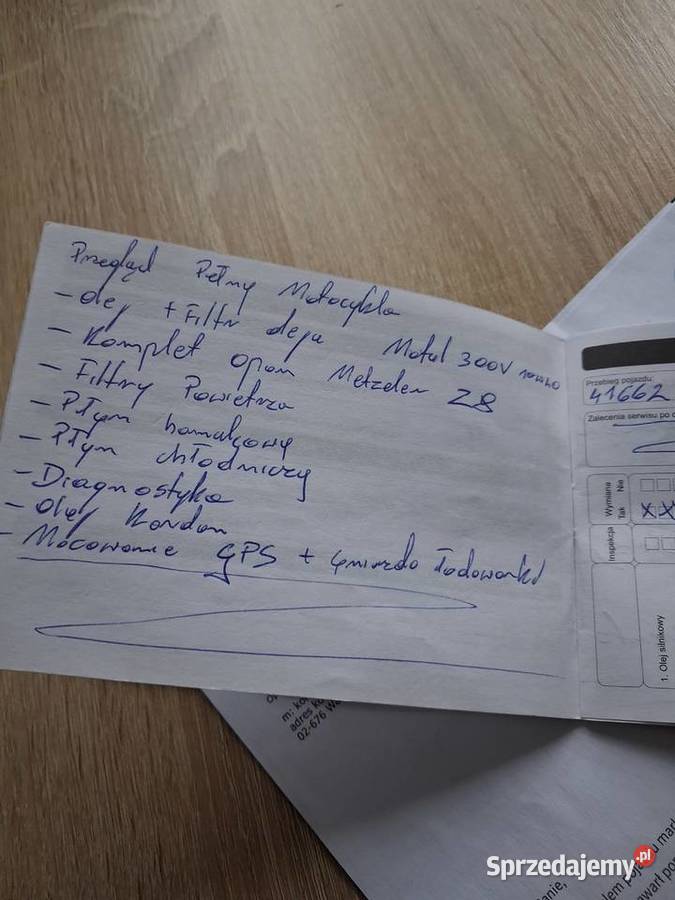 Przegląd Pełny Motocykla
- olej + Filtr oleju Motul 300V 10W40
- Komplet opon Metzeler Z8
- Filtry Powietrza
- Płyn hamulcowy
- Płyn chłodniczy
- Diagnostyka
- olej Kardan
- Mocowanie GPS + gniazdo ładowarki
Przebieg pojazdu:
41662
Zalecenia serwisu po
Wymiana
Tak Nie
Inspekcja
1. Olej silnikowy
adres
02-676
Sprzedajemy.pl